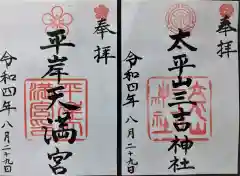 奉拝
平岸天満宮
令和四年八月二十九日
奉拝
太平山三吉神社
令和四年八月二十九日